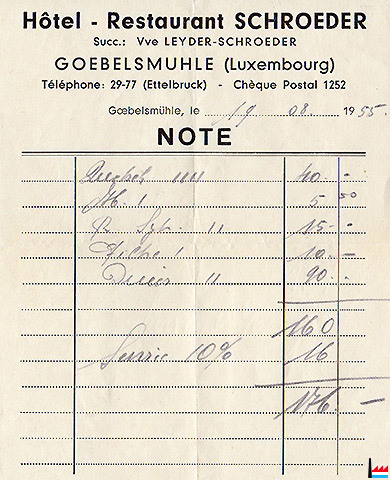 Hôtel - Restaurant SCHROEDER
Succ.: Vve LEYDER-SCHROEDER
GOEBELSMUHLE (Luxembourg)
Téléphone: 29-77 (Ettelbruck) - Chèque Postal 1252
Gœbelsmühle, le 19 08. 1955.
NOTE
40.-
5 50
15.-
10.-
90.-
160
Servic 10% 16
176.-